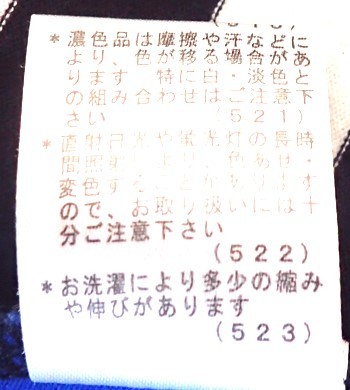 (518)
*濃色品は摩擦や汗などに
より、色が移る場合があ
ります。特に白・淡色と
の組み合わせはご注意下
さい
(521)
*直射日光や蛍光灯の長時
間照射は、色あせ・
変色することがあります
ので、お取り扱いには十
分ご注意下さい
(522)
*お洗濯により多少の縮み
や伸びがあります
(523)